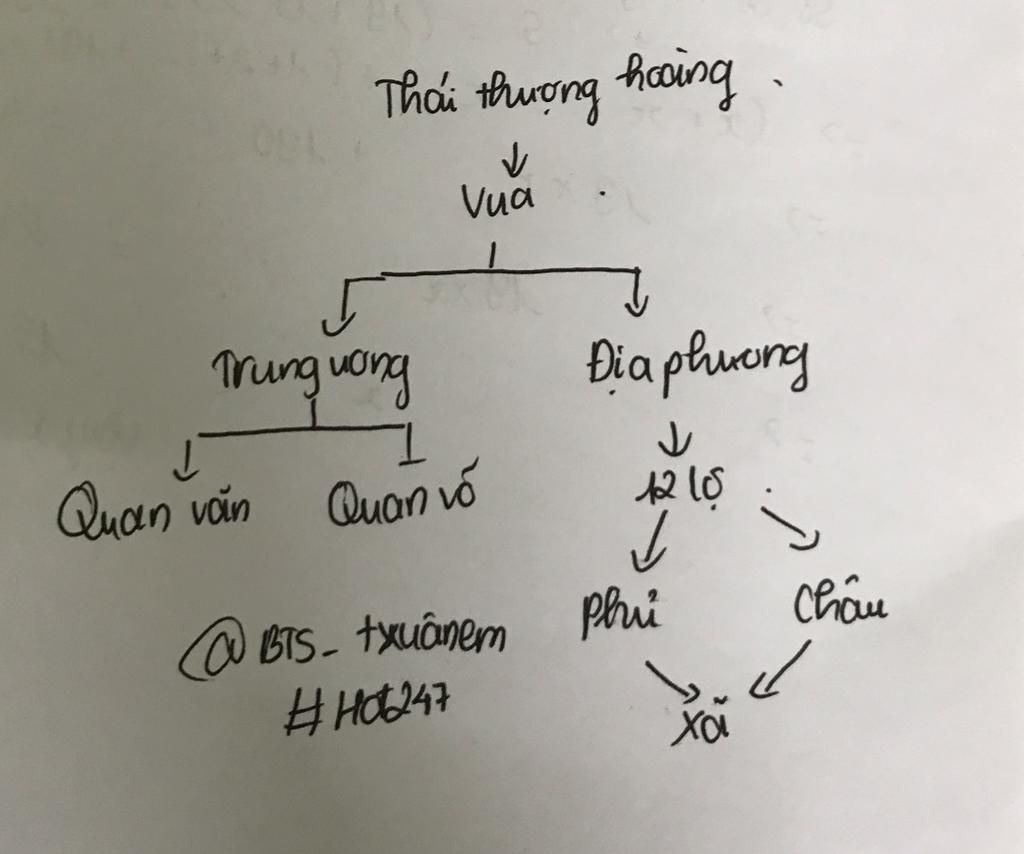 Thái thượng hoàng
Vua
Trung ương
Địa phương
Quan văn
Quan võ
12 lộ
phủ
Châu
xã
@BTS_txuânem
#Hot247